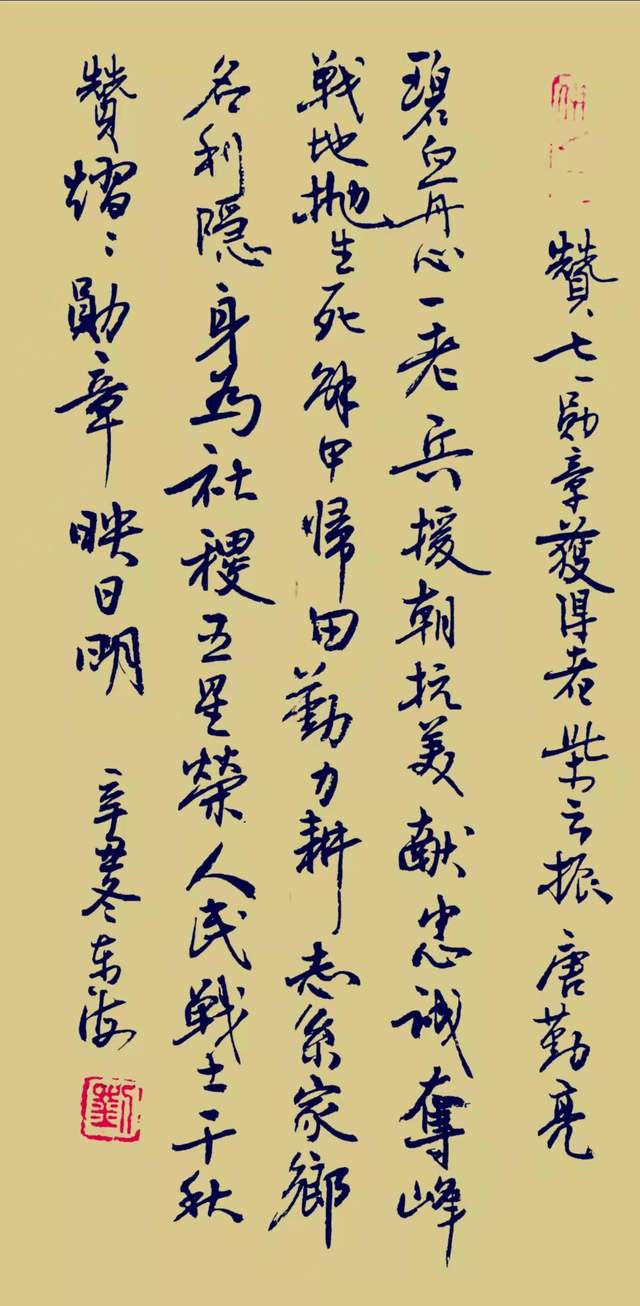 贊七一勛章獲得者柴云振 唐勤亮
碧血丹心一老兵援朝抗美献忠诚奪峰
戦地抛生死解甲帰田勤力耕志系家鄉
名利隠身為社稷五星榮人民戦士千秋
贊熠〻勛章映日明 辛丑冬东海
劉